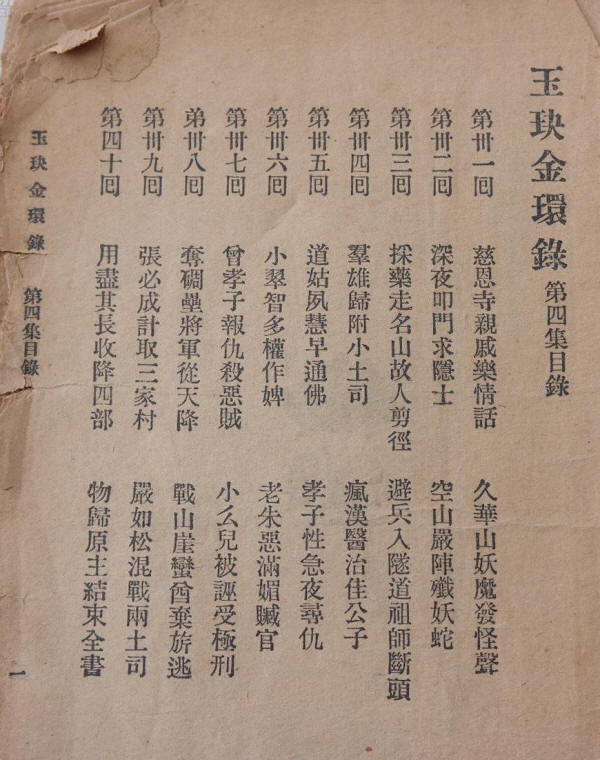 玉玦金環錄 第四集目錄
第卅一囘 慈恩寺親戚樂情話 久華山妖魔發怪聲
第卅二囘 深夜叩門求隱士 空山嚴陣殲妖蛇
第卅三囘 採藥走名山故人剪徑 避兵入隧道祖師斷頭
第卅四囘 羣雄歸附小土司 瘋漢醫治佳公子
第卅五囘 道姑夙慧早通佛 孝子性急夜尋仇
第卅六囘 小翠智多權作婢 老朱惡滿媚贓官
第卅七囘 曾孝子報仇殺惡賊 小么兒被誣受極刑
弟卅八囘 奪碉壘將軍從天降 戰山崖蠻酋棄旂逃
第卅九囘 張必成計取三家村 嚴如松混戰兩土司
第四十囘 用盡其長收降四部 物歸原主結束全書
玉玦金環錄 第四集目錄 一